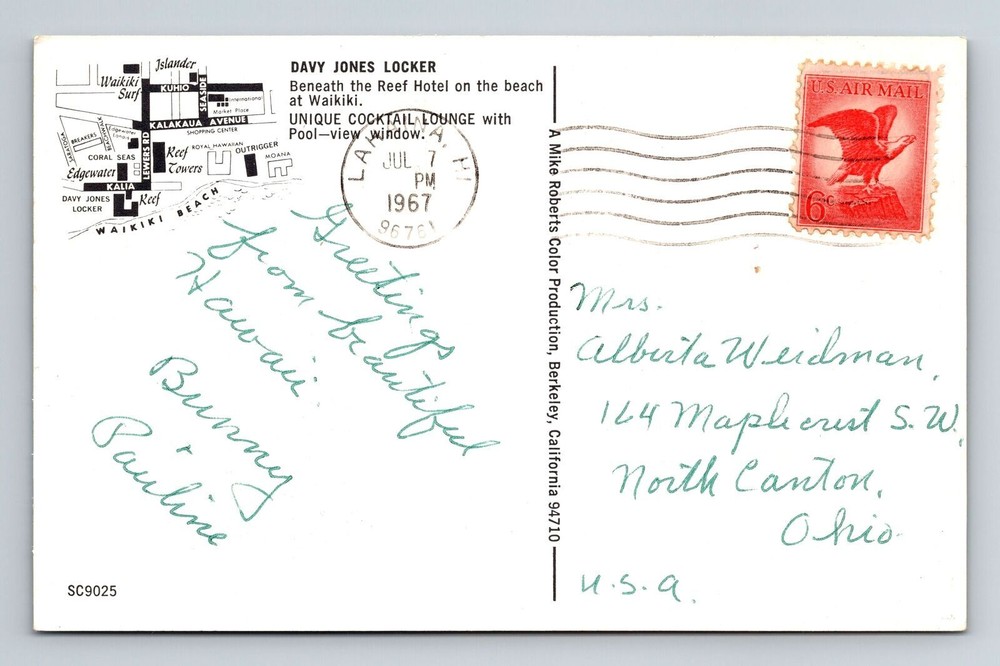 Islander
Waikiki
Surf
KUHIO
SEASIDE
International
Market Place
KALAKAUA AVENUE
SHOPPING CENTER
BREAKERS
Edgewater
LEWERS RD
CORAL SEAS
Reef
Towers
ROYAL HAWAIIAN
OUTRIGGER
MOANA
Edgewater
KALIA
DAVY JONES
LOCKER
Reef
WAIKIKI BEACH
DAVY JONES LOCKER
Beneath the Reef Hotel on the beach
at Waikiki.
UNIQUE COCKTAIL LOUNGE with
Pool—view window.
LAHAINA, HI
JUL 7
PM
1967
96761
U.S. AIR MAIL
6c
Greetings
from beautiful
Hawaii.
Bunny
+
Pauline
A Mike Roberts Color Production, Berkeley, California 94710
Mrs.
Alberta Weidman,
164 Maplecrest S.W.,
North Canton,
Ohio
U.S.A.
SC9025